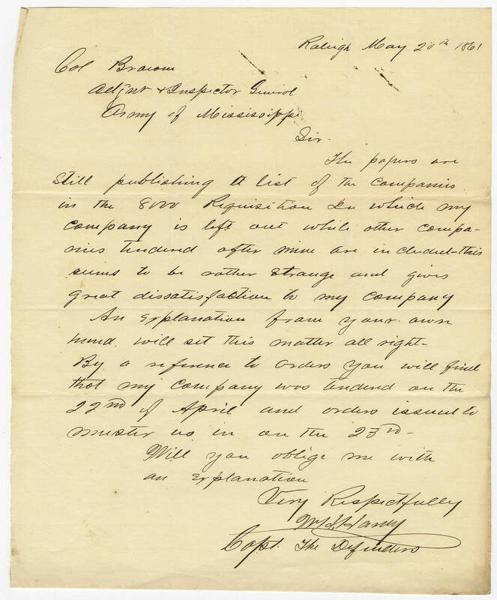 Raleigh May 20th 1861
Col
Adjnt & Inspector General
Army of Mississippi
Sir.
The papers are
still publishing a list of the companies
in the 8000 Requisition In which my
company is left out while other compa-
nies tendered after mine are included- this
seems to be rather strange and gives
great dissatisfaction to my company
An explanation from your own
hand will set this matter all right-
By a reference to orders you will find
that my company was tendered on the
22nd of April and orders issued to
muster us in on the 23rd-
Will you oblige me with
an explanation
Very Respectfully
Capt. The Defenders